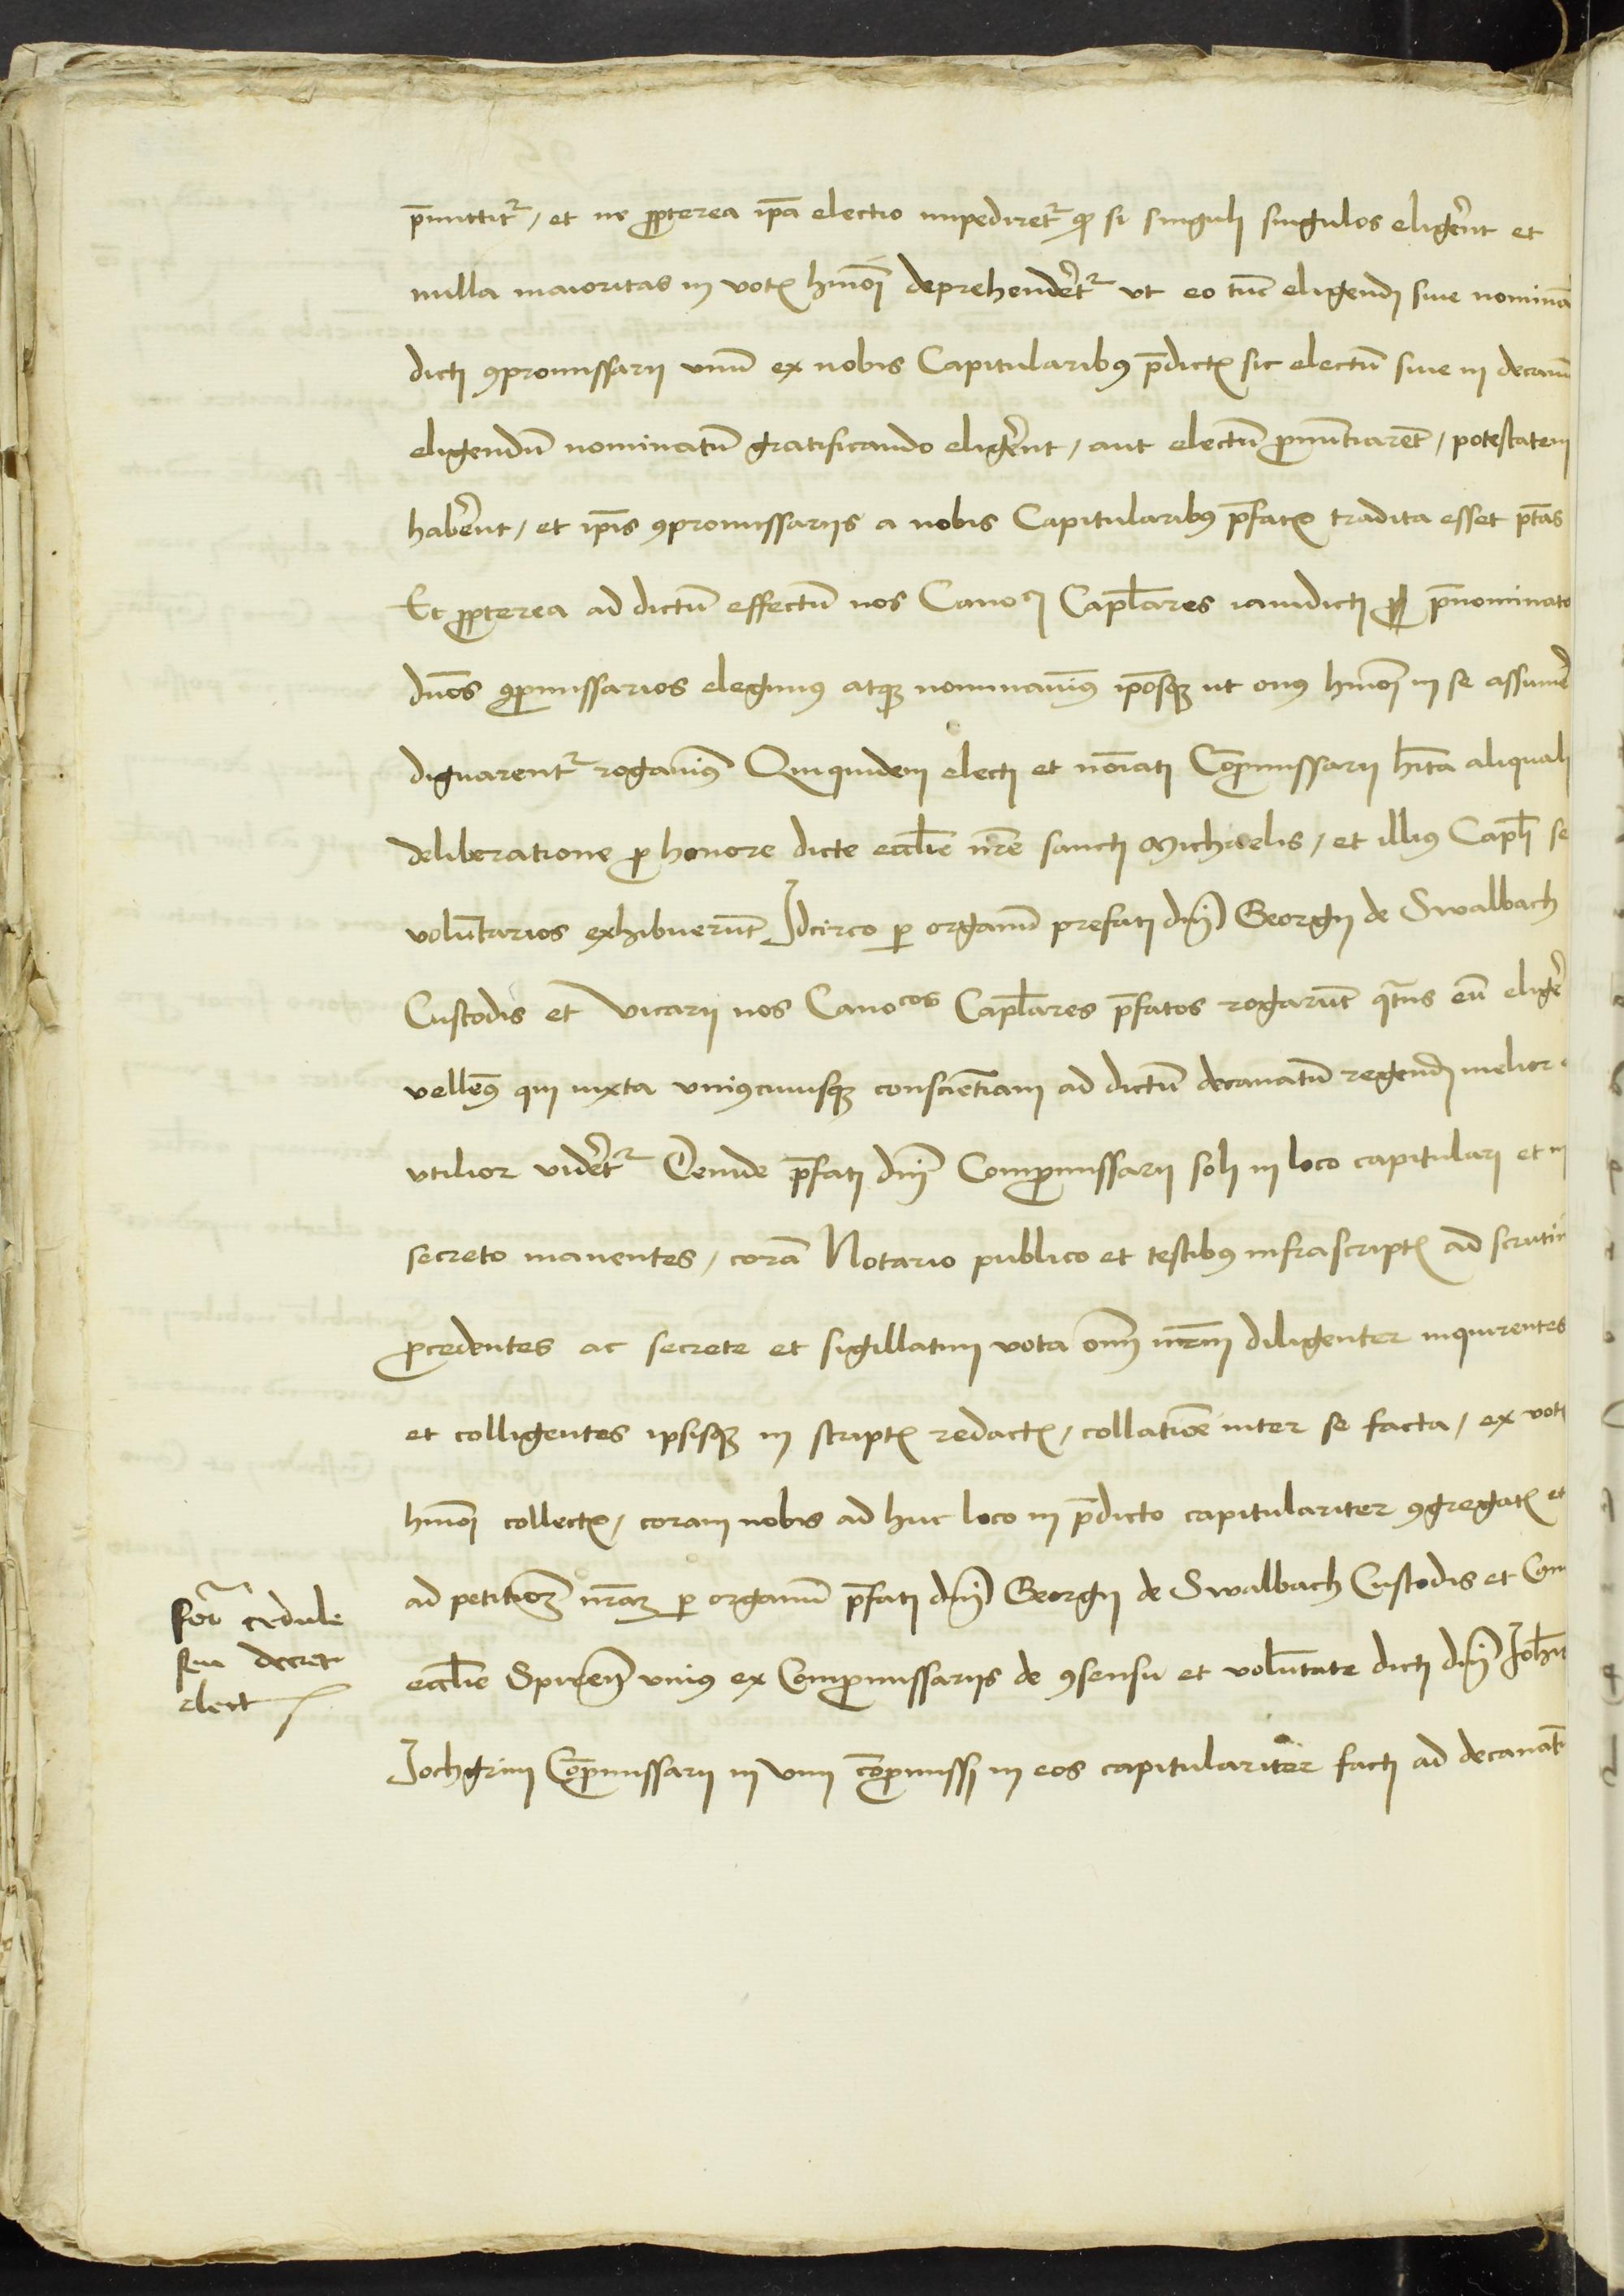 p̄mittit᷑ / et ne ꝓpterea ip̄a electio impediret᷑ ꝙ si singuli singulos eliger̄nt et
nulla maioritas in votꝭ hm̄oi deprehender̄t᷑ vt eo tūc eligendi siue nominā
dicti ꝯpromissarij vnū ex nobis Capitularibꝰ p̄dictꝭ sic electū siue in decanū
eligendū nominatū gratificando eliger̄nt / aut electū pronūtiarēt / potestatem
haber̄ent / et ip̄is ꝯpromissarijs a nobis Capitularibꝰ p̄fatꝭ tradita esset p̄tas
Et ꝓpterea ad dictū effectū nos Canoci Capl̄ares iamdicti p̄nominato
dn̄os ꝯpromissarios elegimꝰ atqꝫ nominauimꝰ ip̄osqꝫ ut onꝰ hm̄oi in se assumer̄
dignarent᷑ rogauimꝰ Quiquidem electi et no͞iati Cōpromissarij h̄ita aliquali
deliberatione ꝓ honore dicte eccl̄ie nr̄e sancti Michaelis / et illiꝰ Capl̄i se
volūtarios exhibuerūt Idcirco ꝑ organū prefati dn̄i Georgij de Swalbach
Custodis et vicarij nos Canocos Capl̄ares p̄fatos rogarūt qꝫtinus eū eliger̄
vellemꝰ qui iuxta vniꝰcuiusqꝫ conscientiam ad dictū decanatū regendi melior
vtilior vider̄et᷑ Deinde p̄fati dn̄i Compromissarij soli in loco capitulari et in
secreto manentes / corā Notario publico et testibꝰ infrascriptꝭ ad scrutin
procedentes ac secrete et sigillatim vota om̄i nr̄m diligenter inquirentes
et colligentes ipsisqꝫ in scriptꝭ redactꝭ / collatiōe inter se facta / ex voti
hm̄oi collectꝭ / coram nobis ad huc loco in p̄dicto capitulariter ꝯgregatꝭ et
ad petitiōꝫ nr̄aꝫ ꝑ organū p̄fati dn̄i Georgij de Swalbach Custodis et Can
eccl̄ie Spireñ vniꝰ ex Compromissarijs de ꝯsensu et volūtate dicti dn̄i Joh̄n
Jochgrim Cōpromissarij in vim cōpromissi in eos capitulariter facti ad decanatū
for᷑ cedule
seu decreti
elect